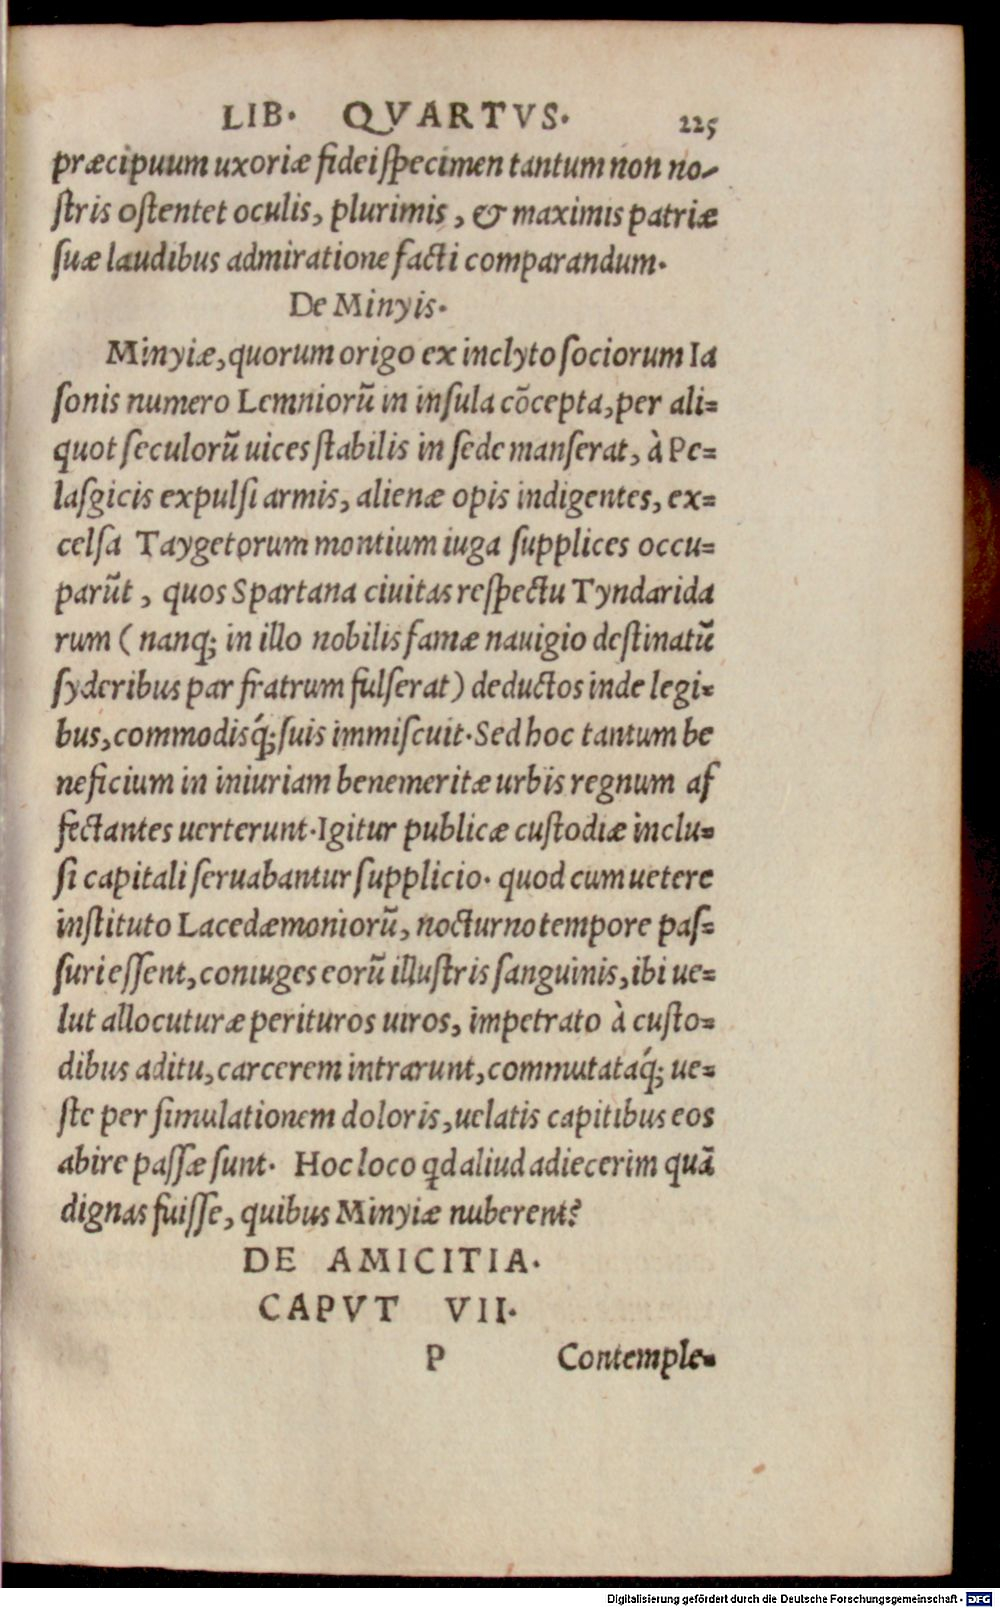 LIB. QVARTVS. 225
præcipuum uxoriæ fidei ſpecimen tantum non no-
ſtris oſtentet oculis, plurimis, & maximis patriæ
ſuæ laudibus admiratione facti comparandum.
De Minyis.
Minyiæ, quorum origo ex inclyto ſociorum Ia
ſonis numero Lemniorũ in inſula cõcepta, per ali=
quot ſeculorũ uices ſtabilis in ſede manſerat, à Pe=
laſgicis expulſi armis, alienæ opis indigentes, ex=
celſa Taygetorum montium iuga ſupplices occu=
parũt, quos Spartana ciuitas reſpectu Tyndarida
rum (nanq; in illo nobilis famæ nauigio deſtinatũ
ſyderibus par fratrum fulſerat) deductos inde legi=
bus, commodisq́; ſuis immiſcuit. Sed hoc tantum be
neficium in iniuriam benemeritæ urbis regnum af
fectantes uerterunt. Igitur publicæ cuſtodiæ inclu=
ſi capitali ſeruabantur ſupplicio. quod cum uetere
inſtituto Lacedæmoniorũ, nocturno tempore paſ=
ſuri eſſent, coniuges eorũ illuſtris ſanguinis, ibi ue=
lut allocuturæ perituros uiros, impetrato à cuſto=
dibus aditu, carcerem intrarunt, commutataq́; ue=
ſte per ſimulationem doloris, uelatis capitibus eos
abire paſſæ ſunt. Hoc loco qd aliud adiecerim quã
dignas fuiſſe, quibus Minyiæ nuberent?
DE AMICITIA.
CAPVT VII.
P Contemple=
Digitalisierung gefördert durch die Deutsche Forschungsgemeinschaft - DFG